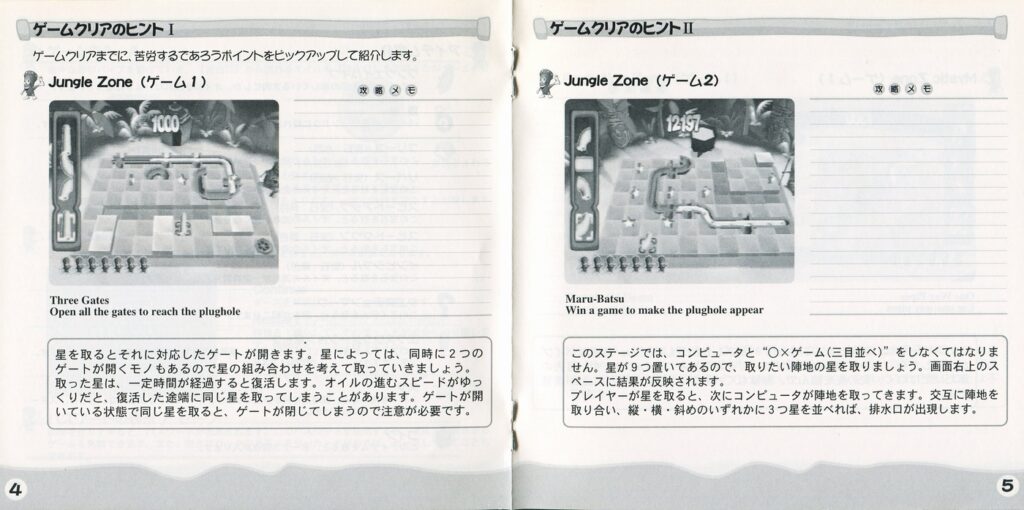 ゲームクリアのヒントⅠ
ゲームクリアまでに、苦労するであろうポイントをピックアップして紹介します。
Jungle Zone (ゲーム1)
攻略メモ
1000
Three Gates
Open all the gates to reach the plughole
星を取るとそれに対応したゲートが開きます。星によっては、同時に2つの
ゲートが開くモノもあるので星の組み合わせを考えて取っていきましょう。
取った星は、一定時間が経過すると復活します。オイルの進むスピードがゆっ
くりだと、復活した途端に同じ星を取ってしまうことがあります。ゲートが開
いている状態で同じ星を取ると、ゲートが閉じてしまうので注意が必要です。
4
ゲームクリアのヒントⅡ
Jungle Zone (ゲーム2)
攻略メモ
12197
Maru-Batsu
Win a game to make the plughole appear
このステージでは、コンピュータと“○×ゲーム(三目並べ)”をしなくてはなりま
せん。星が9つ置いてあるので、取りたい陣地の星を取りましょう。画面右上のス
ペースに結果が反映されます。
プレイヤーが星を取ると、次にコンピュータが陣地を取ってきます。交互に陣地を
取り合い、縦・横・斜めのいずれかに3つ星を並べれば、排水口が出現します。
5